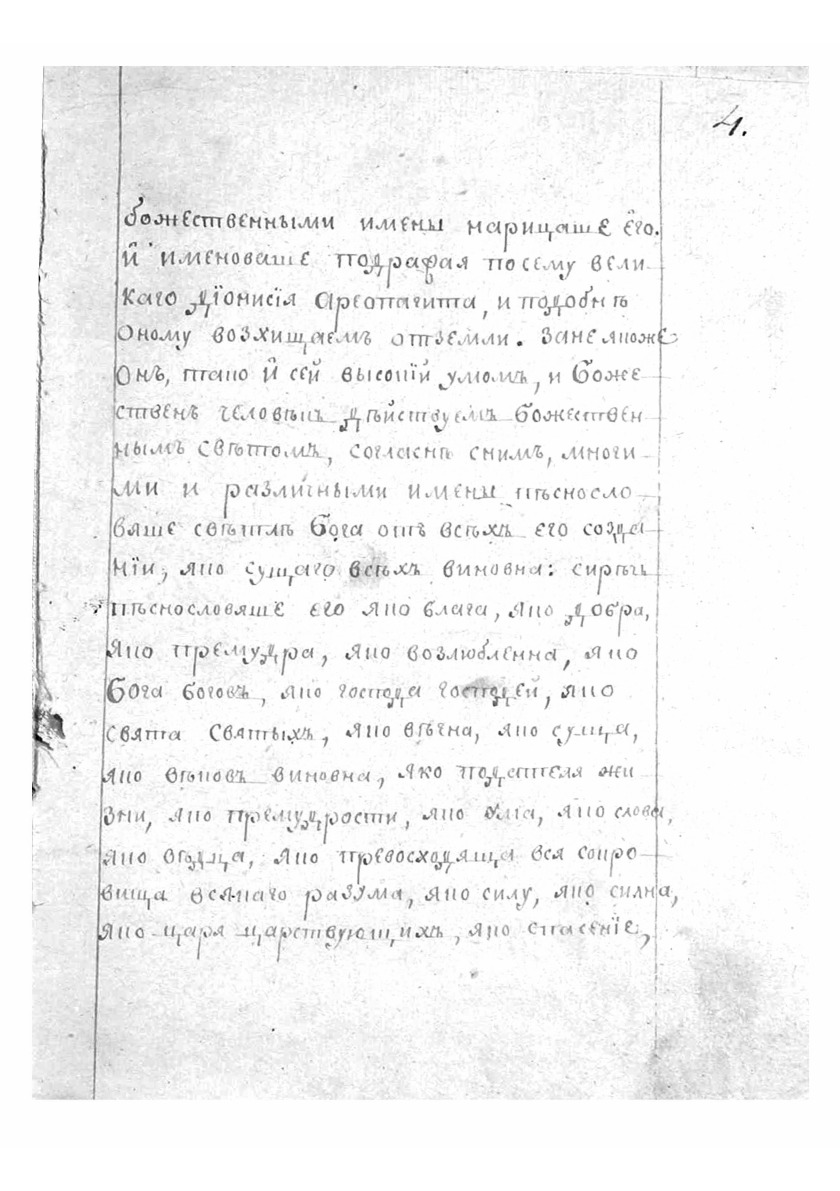 4.
божественными имены нарицаше его.
И именоваше подражая посему вели
каго Дїонисїя Ареопагита, и подобнѣ
Оному возхищаемъ отземли. Зане якоже
Онъ, тако И сей высокїй умомъ, и Боже
ственъ человѣкъ дѣйствуемъ божествен
нымъ свѣтомъ, согласнѣ снимъ, многи
ми и различными имены пѣсносло
вяше свѣтлѣ Бога отъ всѣхъ его созда
нїи, яко сущаго всѣхъ виновна: сирѣчь
пѣснословяше его яко блага, яко добра,
яко премудра, яко возлюбленна, яко
Бога боговъ, яко господа господей, яко
свята святыхъ, яко вѣчна, яко суща,
яко вѣковъ виновна, яко подателя жи
зни, яко премудрости, яко ума, яко слова,
яко вѣдца, яко превосходяща вся сокро
вища всякаго разума, яко силу, яко силна,
яко царя царствующихъ, яко спасенїе,